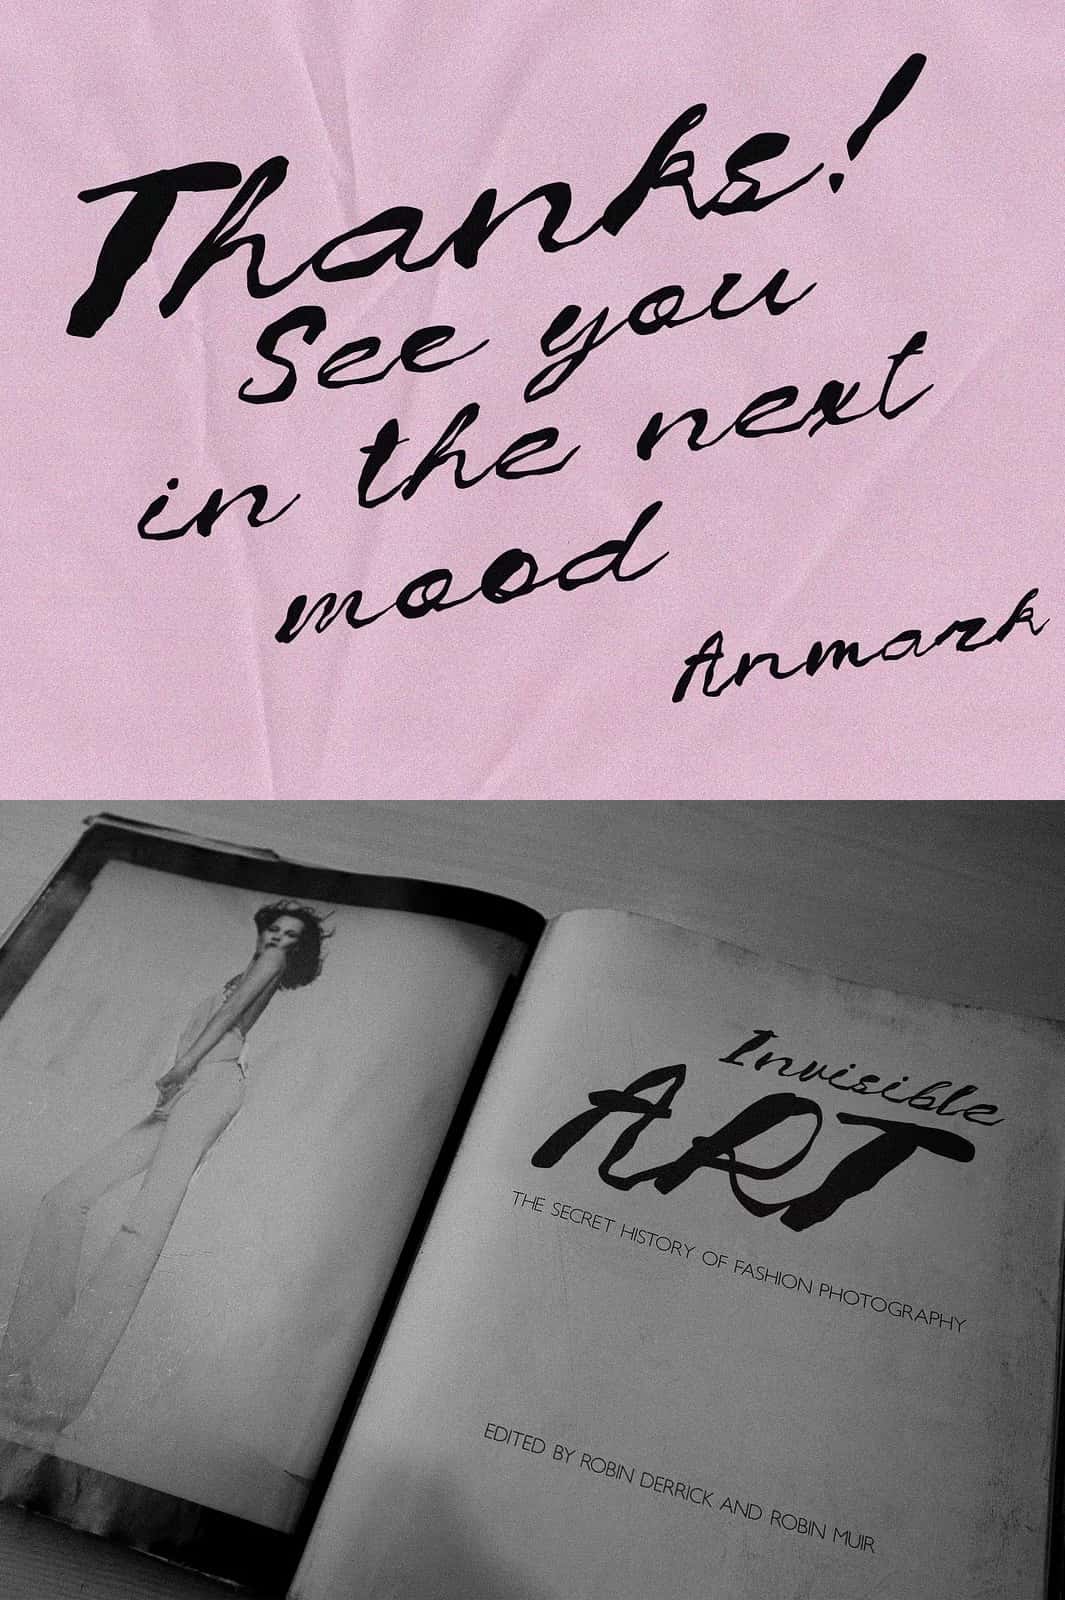 Thanks!
See you
in the next
mood
Anmark
Invisible
ART
THE SECRET HISTORY OF FASHION PHOTOGRAPHY
EDITED BY ROBIN DERRICK AND ROBIN MUIR